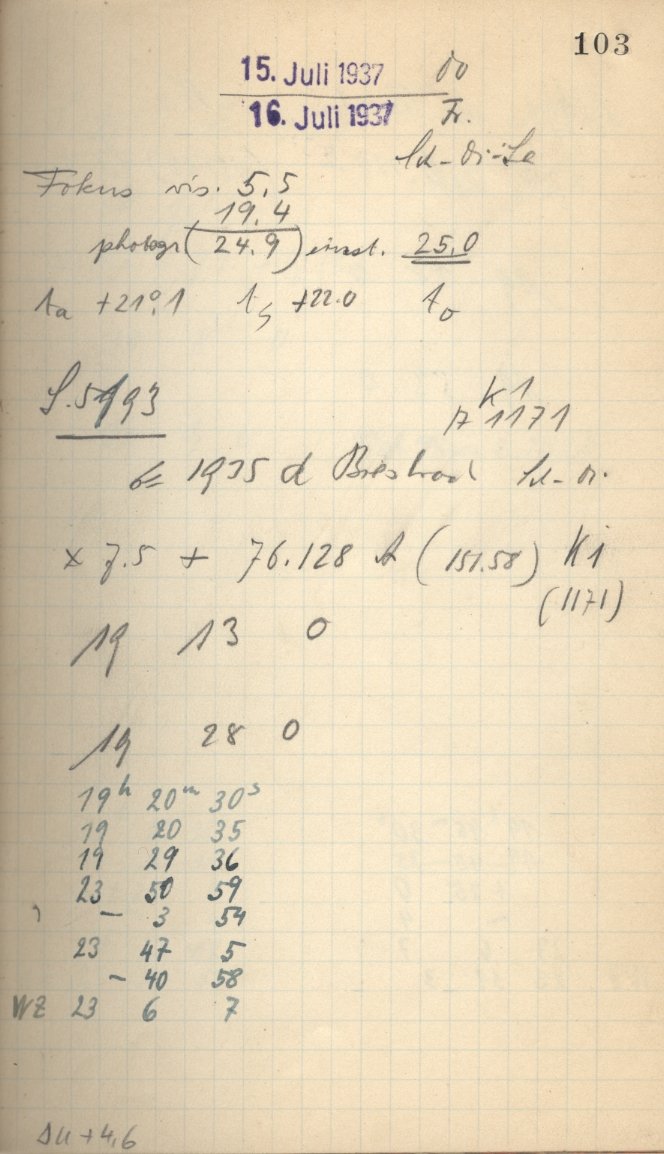 103
15. Juli 1937 Do
16. Juli 1937 Fr.
Fokus vis. 5,5
19,4
photogr (24,9) einst. 25,0
ta +21°,1 +22.0 to
S. 5193
K1
1171
1935 d
× 7.5 + 76.128 A (151.58) Ki
(1171)
19 13 0
19 28 0
19h 20m 30s
19 20 35
19 29 36
23 50 59
- 3 54
23 47 5
- 40 58
WZ 23 6 7
Δu +4,6